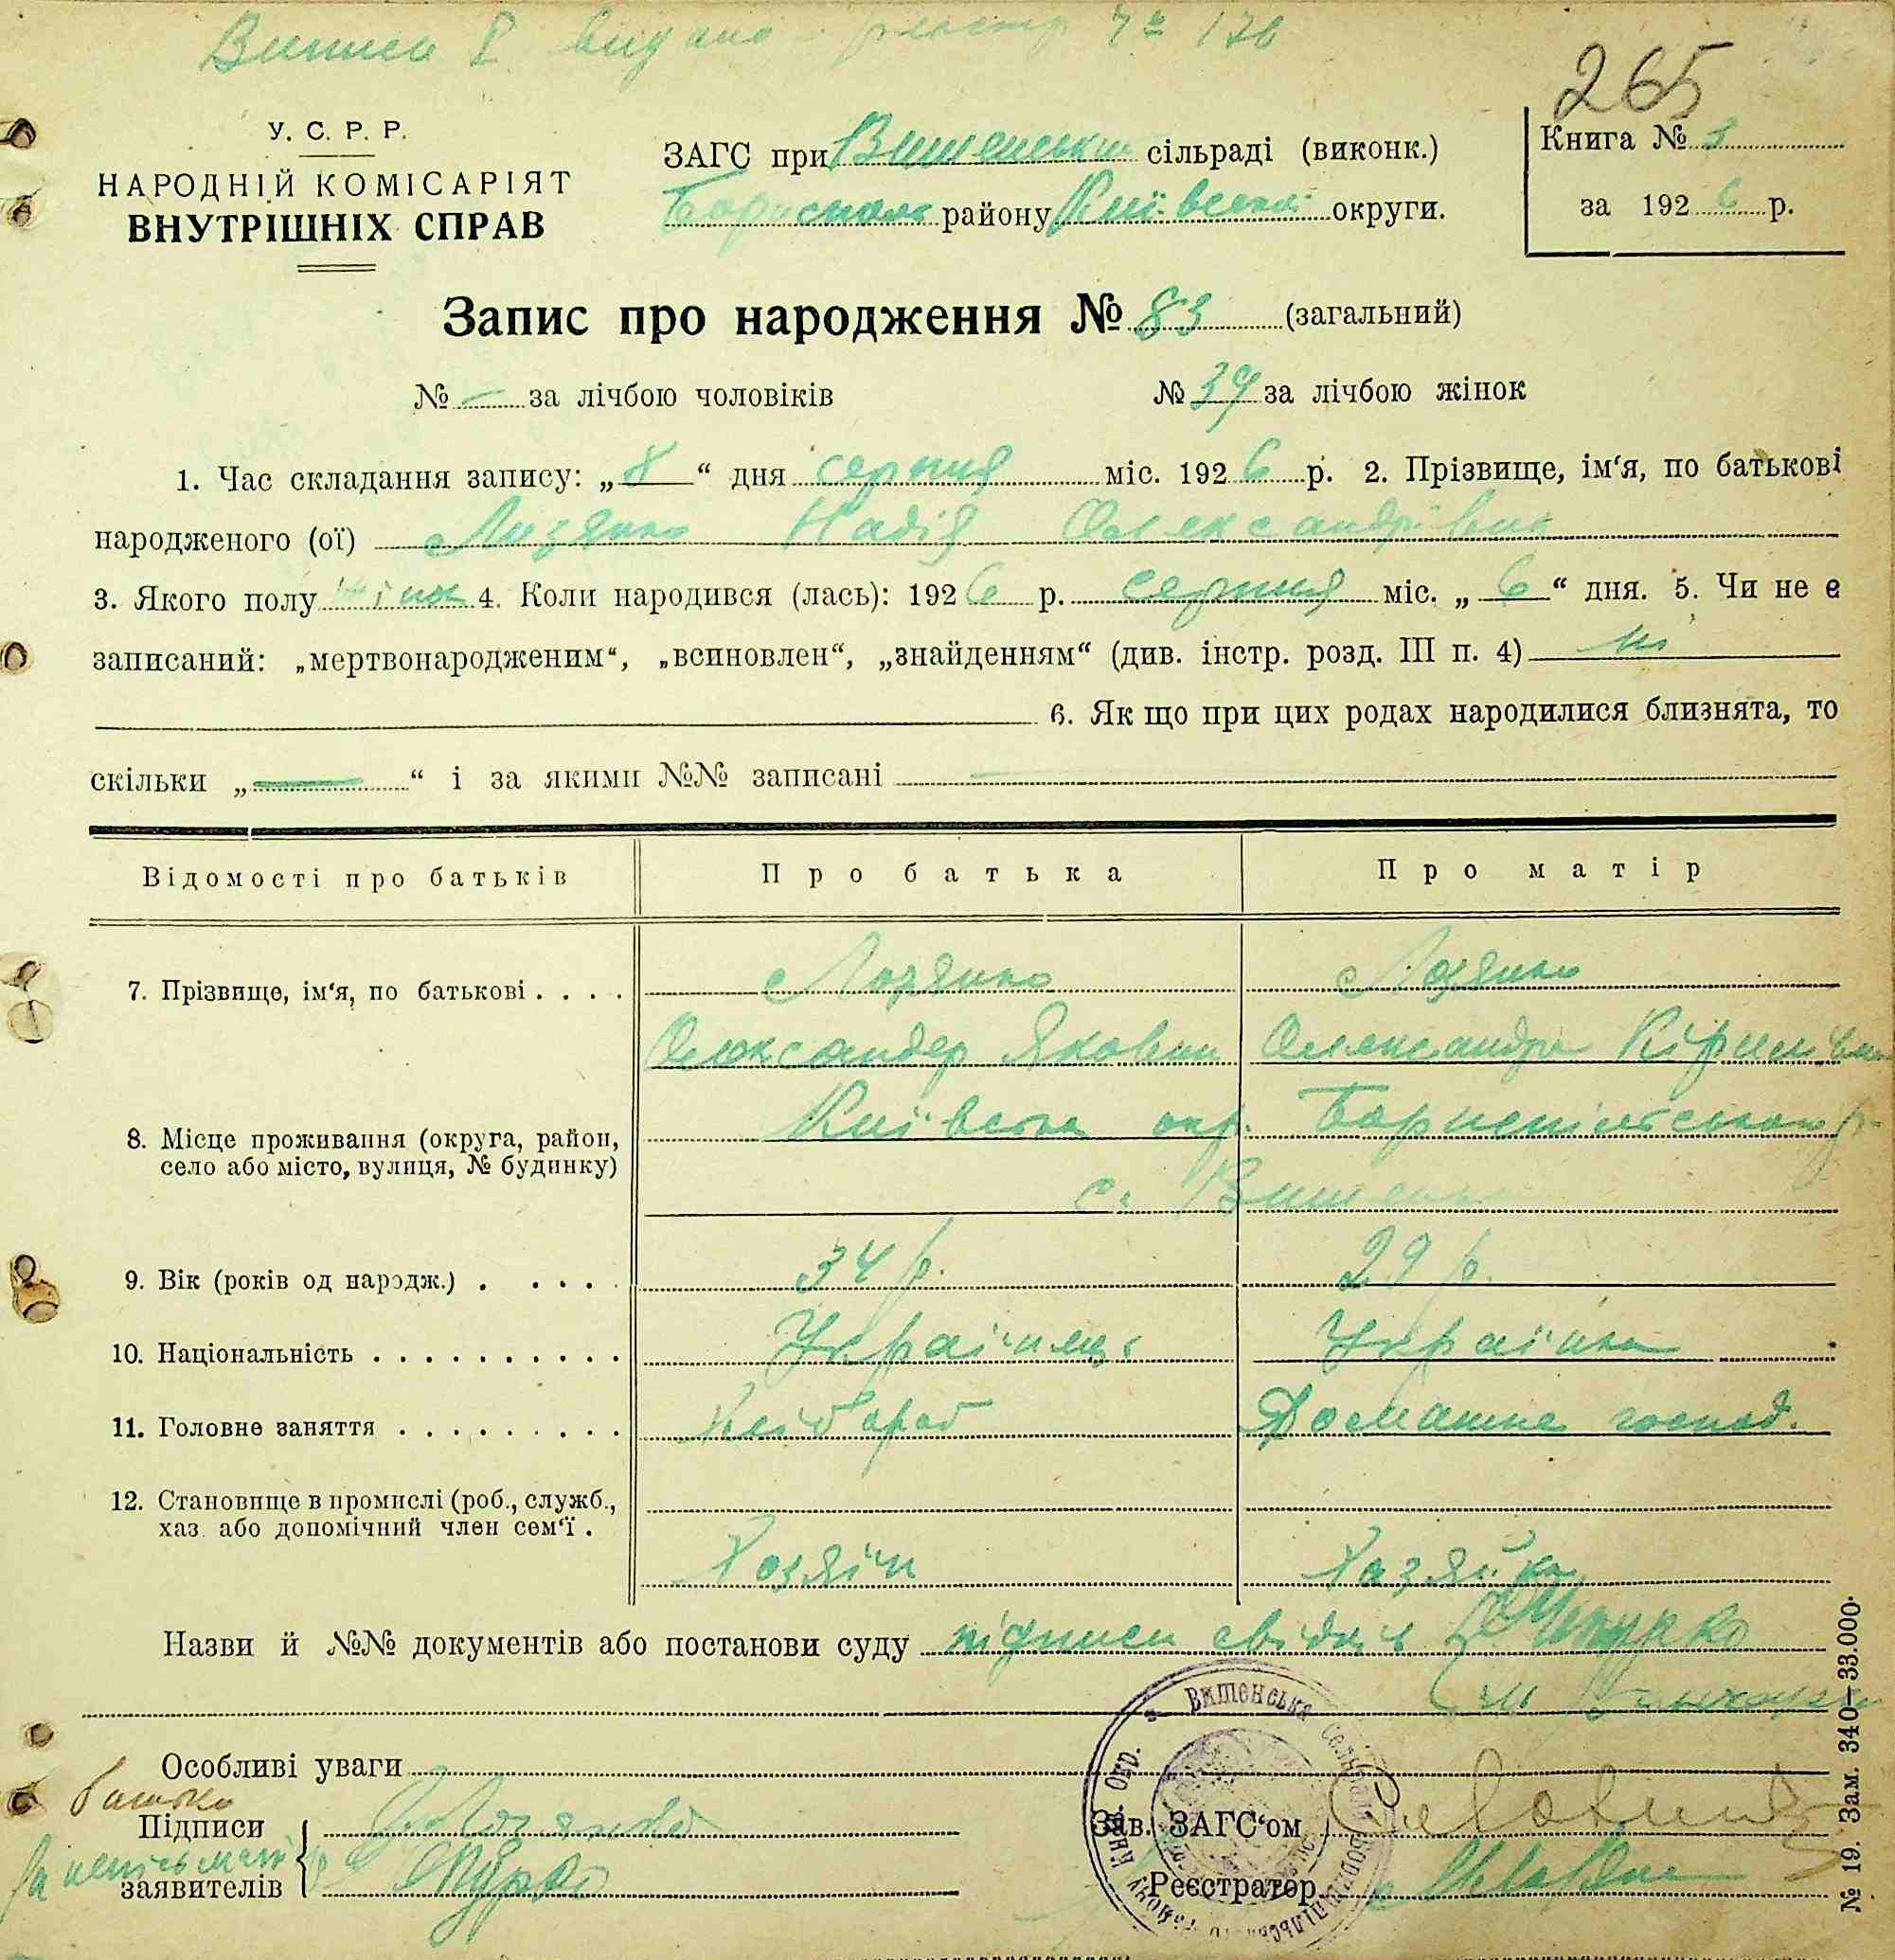 Випись видано реєстр № 176
265
У. С. Р. Р.
НАРОДНІЙ КОМІСАРІЯТ
ВНУТРІШНІХ СПРАВ
ЗАГС при Вишеньській сільраді (виконк.)
району Київської округи.
Книга №
за 1926 р.
Запис про народження № 83 (загальний)
№ — за лічбою чоловіків
№ 39 за лічбою жінок
1. Час складання запису: „8“ дня серпня міс. 1926 р. 2. Прізвище, ім'я, по батькові
народженого (ої) Надія Олександрівна
3. Якого полу жінок 4. Коли народився (лась): 1926 р. серпня міс. „6“ дня. 5. Чи не є
записаний: „мертвонародженим“, „всиновлен“, „знайденням“ (див. інстр. розд. III п. 4) ні
6. Як що при цих родах народилися близнята, то
скільки „—“ і за якими №№ записані —
Відомості про батьків
Про батька
Про матір
7. Прізвище, ім'я, по батькові . . . .
Лозянко
Лозянко
Олександер Якович
Олександра
8. Місце проживання (округа, район,
село або місто, вулиця, № будинку)
Київська окр. Бориспільського р-
с. Вишеньки
9. Вік (років од народж.) . . . . .
34 р.
29 р.
10. Національність . . . . . . . . . .
Українець
Українка
11. Головне заняття . . . . . . . . .
Хлібороб
Домашне господ.
12. Становище в промислі (роб., служб.,
хаз. або допомічний член сем'ї .
Хозяїн
Хазяйка
Назви й №№ документів або постанови суду підписи свідків
Особливі уваги
батько
Підписи
заявителів
Лозянко
Зав. ЗАГС'ом
Реєстратор
Вишенська
Київ. Окр.
№ 19. Зам. 340—33.000.